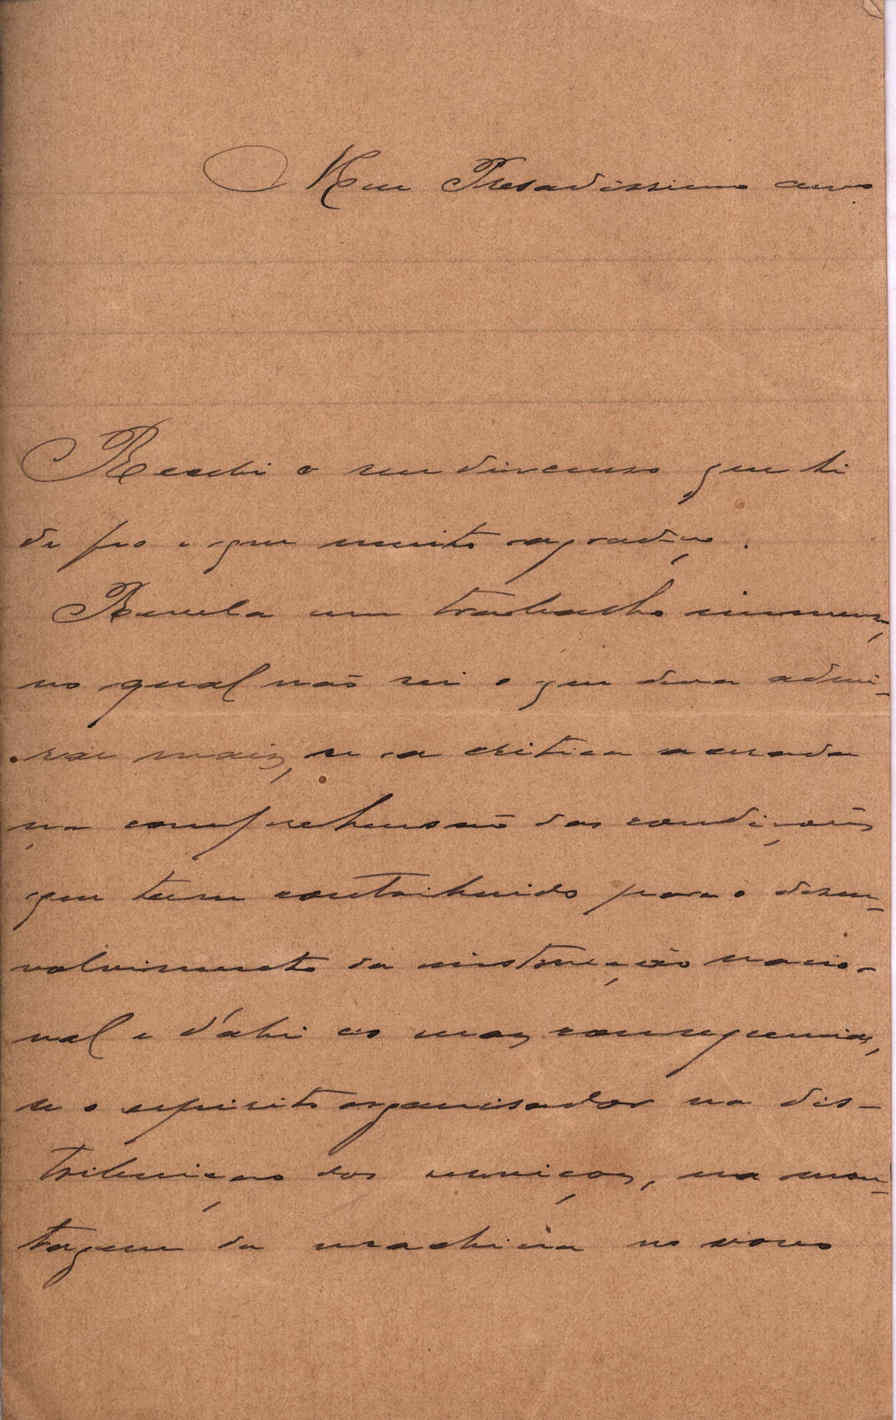 Meu Presadissimo amo
Recebi o seu discurso que li
de fio e que muito agradeço.
Revela um trabalho immenso,
no qual não sei o que deva admi-
rar mais, se a critica acurada
na comprehensão das condições
que tem contribuido para o desen-
volvimento da instrucção nacio-
nal e d'ahi as mas consequencias,
se o espirito organisador na dis-
tribuiçao dos serviços, na mon-
tagem da machina no